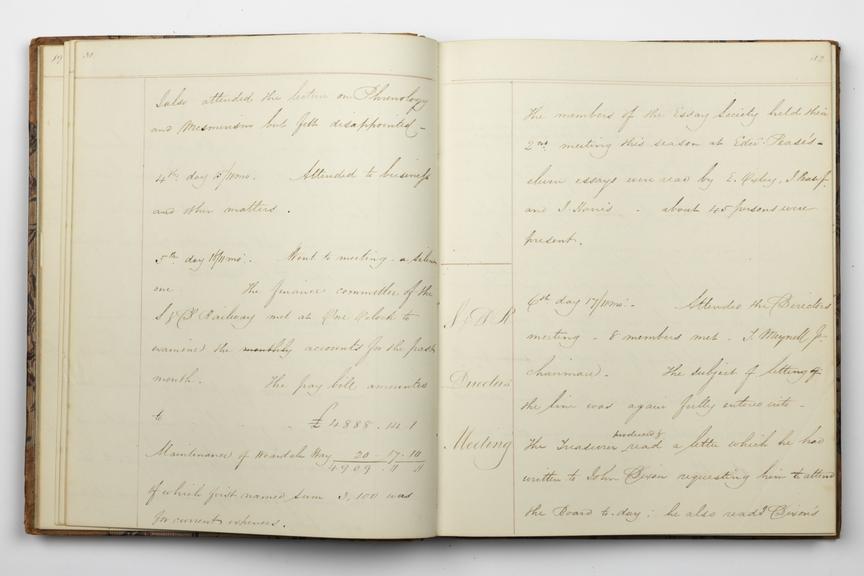 I also attended the lecture on Phrenology
and Mesmerism but felt disappointed –
4th day 15/11 mo. Attended to business
and other matters.
5th day 16/11 mo. Went to meeting – a silent
one. The finance committee of the
S & D Railway met at One O'clock to
examine the monthly accounts for the past
month. The pay bill amounted
to £4888 . 14 . 1
Maintenance of Weardale Way 20 . 17 . 10
4909 . 11 . 11
Of which first named sum 3,100 was
for current expenses.
82
The members of the Essay Society held their
2nd meeting this season at Edwd Pease's –
eleven essays were read by E. , J. Pease Jr
and J. Harris – about 45 persons were
present.
6th day 17/11 mo. – Attended the Directors
meeting – 8 members met – T. Meynell Jr
chairman. The subject of letting of
the line was again fully entered into –
The Treasurer produced & read a letter which he had
written to John Dixon requesting him to attend
the Board to-day; he also read J Dixon's
S & D R
Directors
Meeting